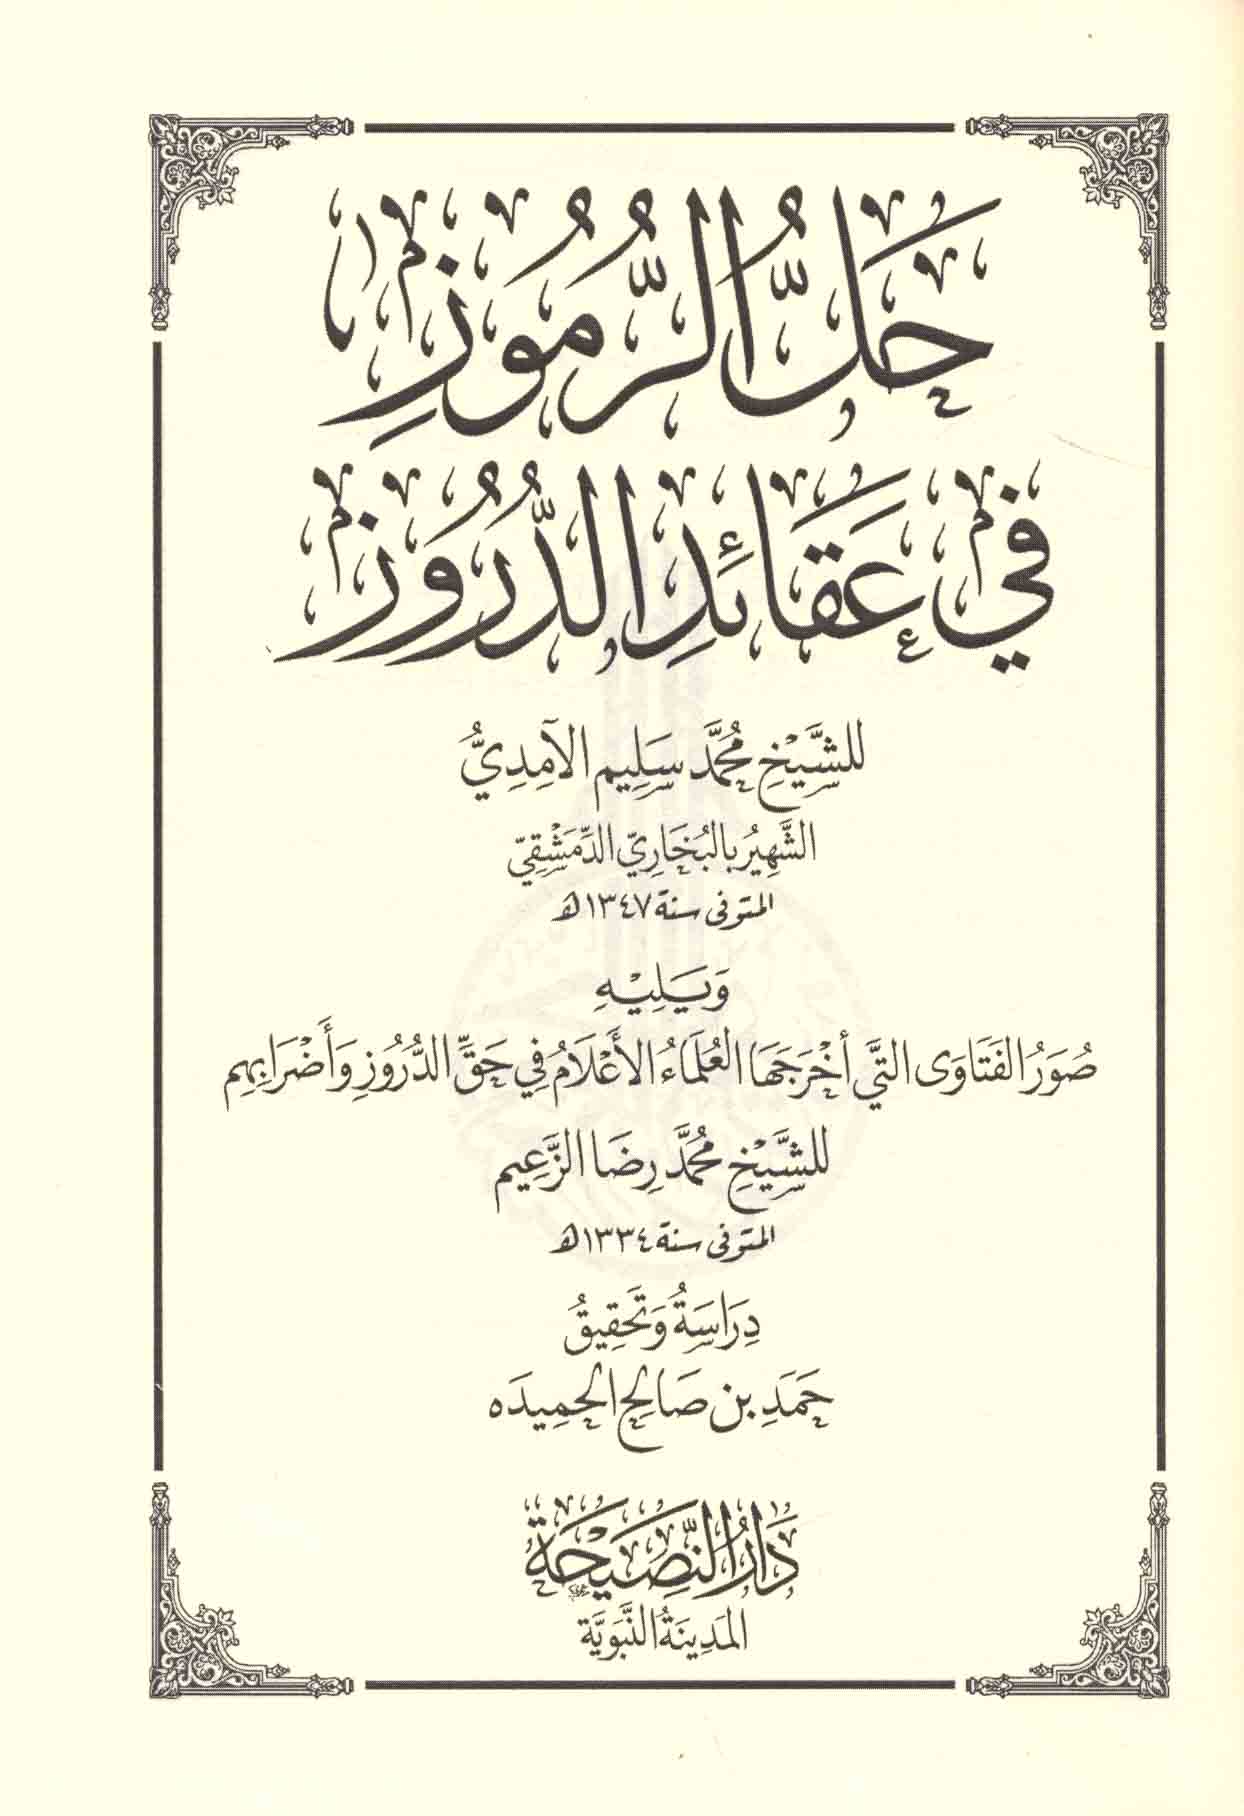 حَلُّ الرُّمُوزِ
فِي عَقَائِدِ الدُّرُوزِ
للشَّيْخِ مُحَمَّد سَلِيم الآمِدِيُّ
الشَّهِيرُ بِالبُخَارِيّ الدِّمَشْقِيّ
المتوفى سنة ١٣٤٧ه
وَيَلِيْهِ
صُوَرُ الفَتَاوَى التَّي أخْرَجَهَا العُلَمَاءُ الأَعْلَامُ فِي حَقِّ الدُّرُوزِ وَأَضْرَابِهِم
للشَّيْخِ مُحَمَّد رِضَا الزَّعِيم
المتوفى سنة ١٣٣٤ه
دِرَاسَةُ وَتَحْقِيقُ
حَمَدِ بن صَالِح الحَمِيدَه
دَارُ النَّصِيْحَة
المَدِينَةُ النَّبَوِيَّة